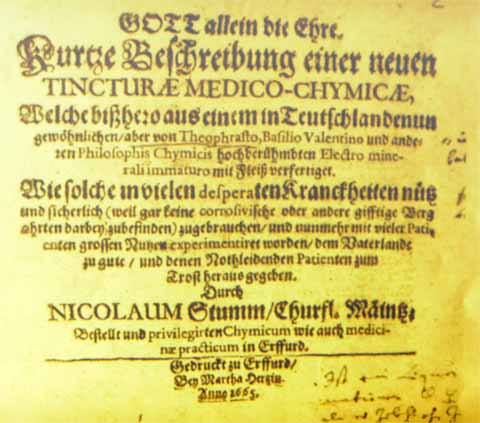 GOTT allein die Ehre.
Kurtze Beschreibung einer neuen
TINCTURÆ MEDICO-CHYMICÆ,
Welche bißhero aus einem in Teutschlandenun
gewöhnlichen/aber von Theophrasto, Basilio Valentino und ande-
ren Philosophis Chymicis hochberühmbten Electro mine-
rali immaturo mit Fleiß verfertiget.
Wie solche in vielen desperaten Kranckheiten nütz
und sicherlich (weil gar keine corrosivische oder andere gifftige Verg
ahrten darbey zubefinden) zugebrauchen/ und nunmehr mit vieler Pati-
enten grossen Nutzen experimentiret worden/ dem Vaterlande
zu gute/ und denen Nothleidenden Patienten zum
Trost heraus gegeben.
Durch
NICOLAUM Stumm/Churfl. Mäintz.
Bestellt und privilegirten Chymicum wie auch medici-
næ practicum in Erffurd.
Gedruckt zu Erffurd/
Bey Martha Hertzin.
Anno 1665.
Ist ein